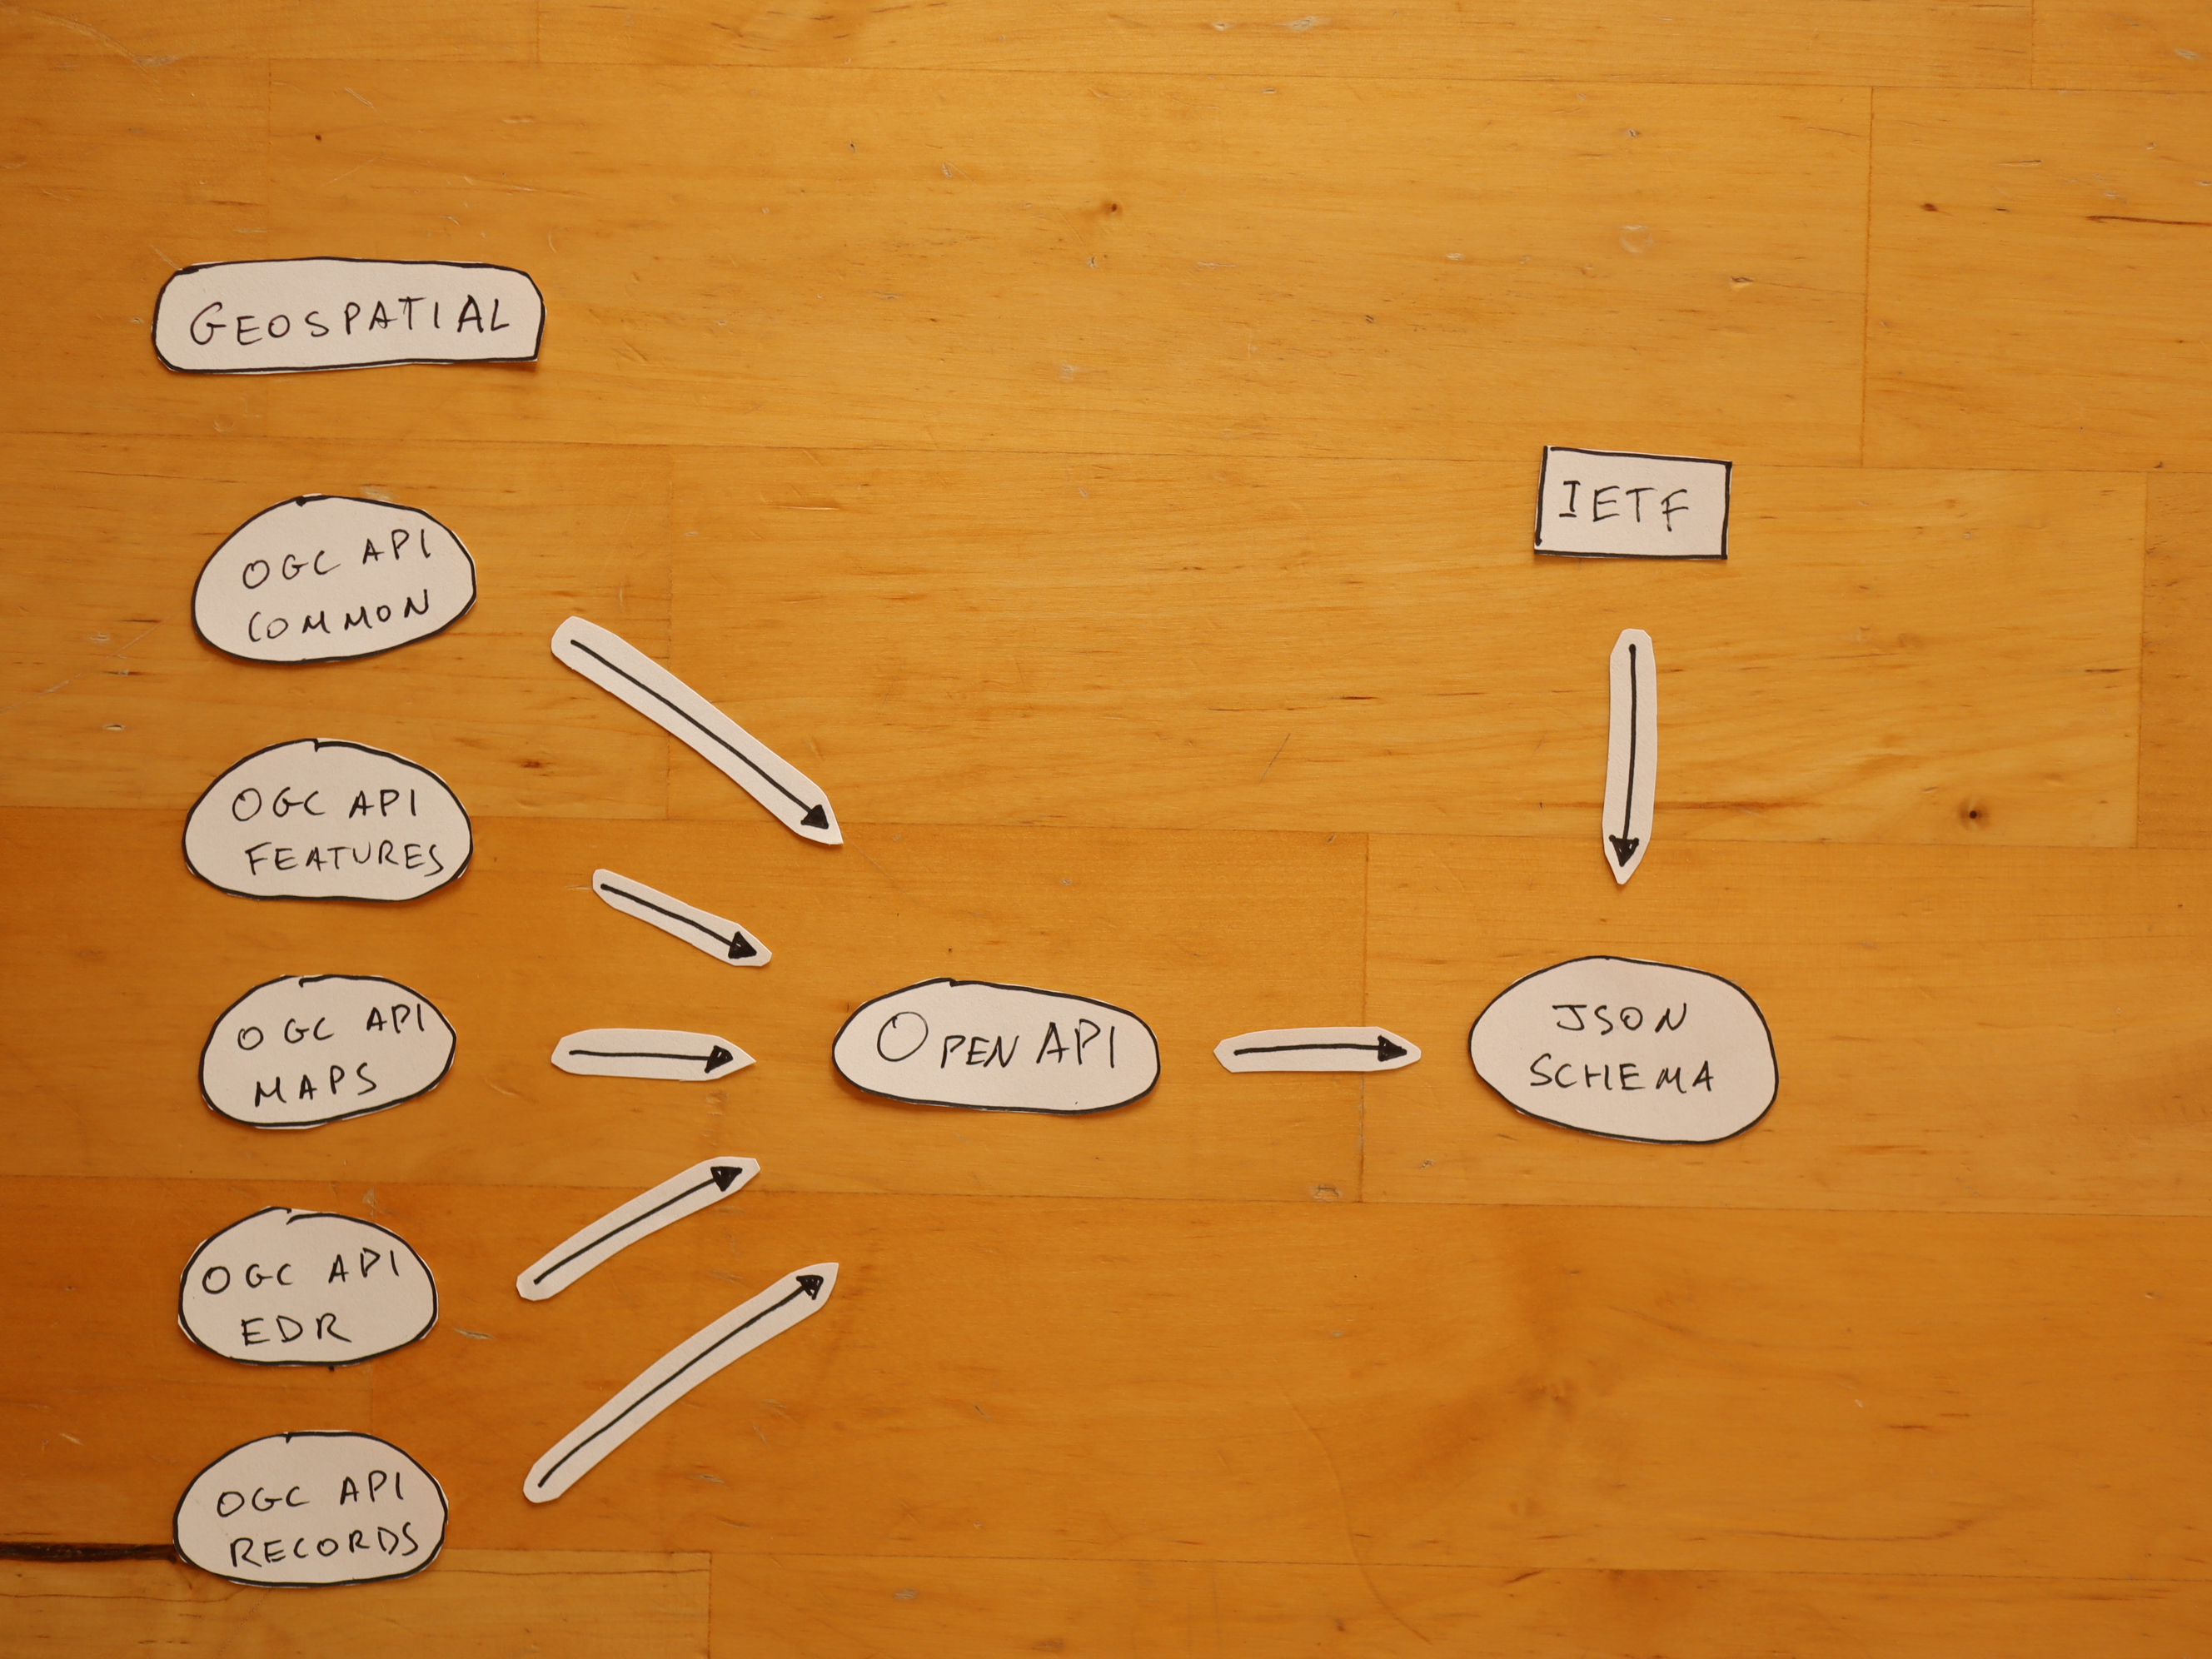 GEOSPATIAL
IETF
OGC API
COMMON
OGC API
FEATURES
OGC API
MAPS
OPEN API
JSON
SCHEMA
OGC API
EDR
OGC API
RECORDS